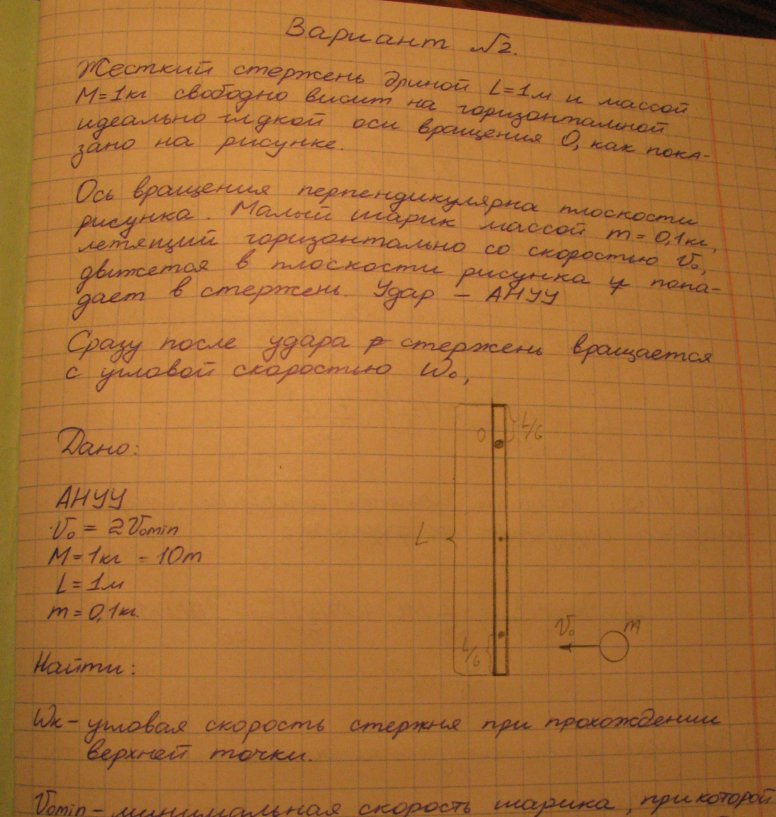 Вариант №2.
Жесткий стержень длиной L=1м и массой
M=1кг свободно висит на горизонтальной
идеально глдкой оси вращения О, как пока-
зано на рисунке.
Ось вращения перпендикулярна плоскости
рисунка. Малый шарик массой m=0,1кг,
летящий горизонтально со скоростью V₀,
движется в плоскости рисунка и попа-
дает в стержень. Удар – АНУУ
Сразу после удара стержень вращается
с угловой скоростью W₀,
Дано:
АНУУ
V₀ = 2V₀min
M=1кг = 10m
L=1м
m=0,1кг.
Найти:
O
L/6
L
L/6
V₀
m
Wк – угловая скорость стержня при прохождении
верхней точки.
V₀min – минимальная скорость шарика, при которой